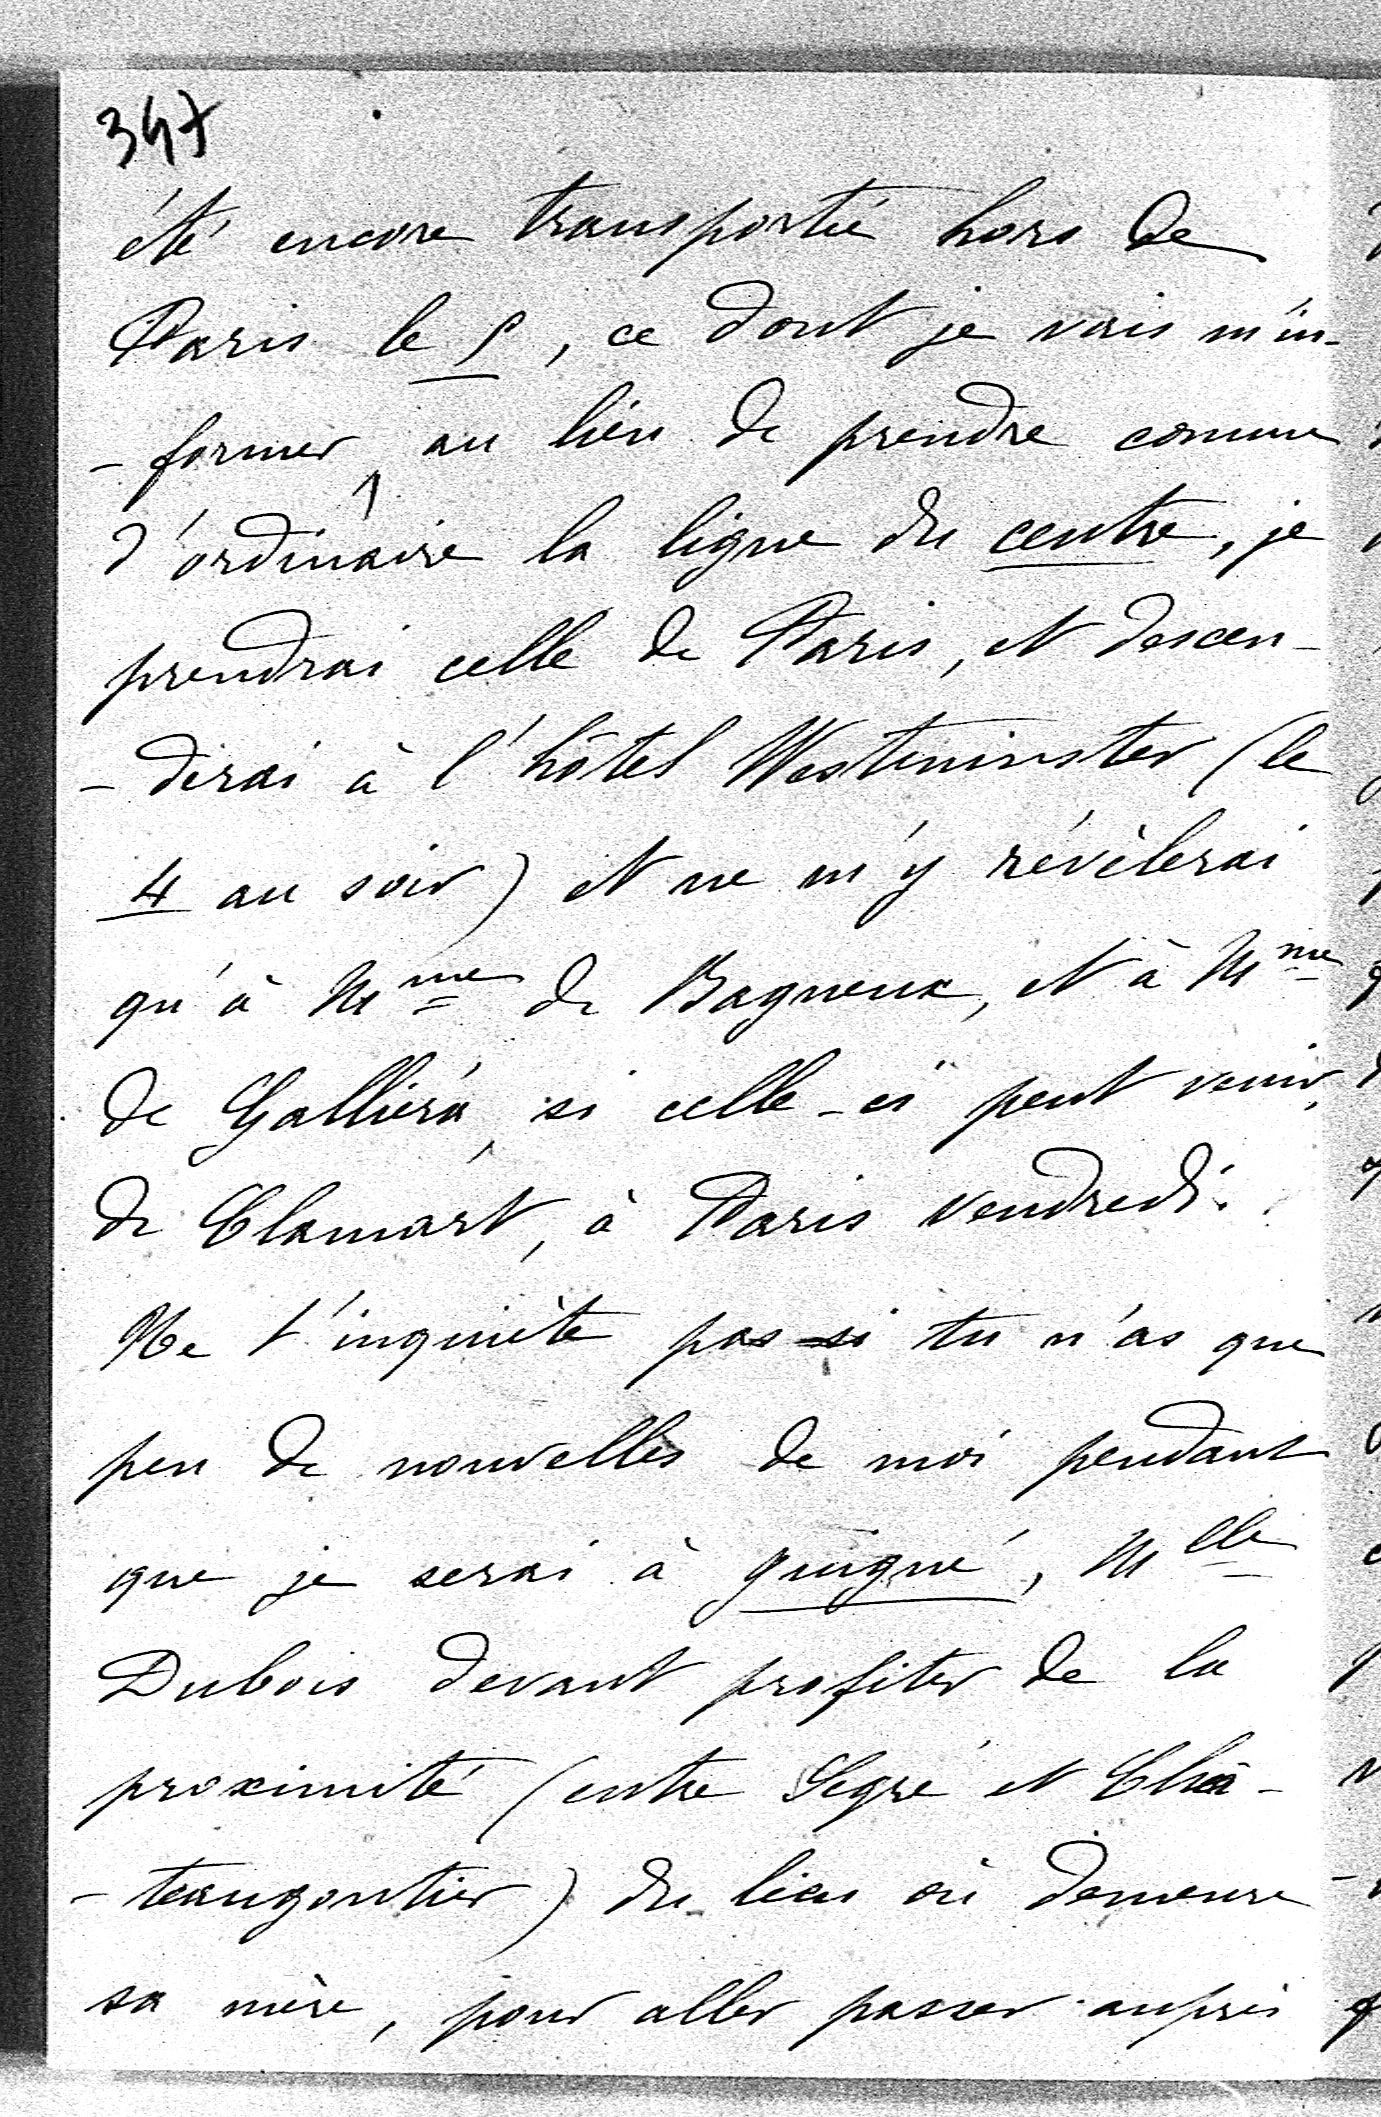 347
été encore transportée hors de
Paris le 5, ce dont je vais m'in-
-former, au lieu de prendre comme
d'ordinaire la ligne du centre, je
prendrai celle de Paris, et descen-
-derai à l'hôtel Westminster (le
4 au soir) et ne m'y révèlerai
qu'à Mme de Bagneux, et à Mme
de Galliéra, si celle-ci peut venir,
de Clamart, à Paris vendredi.
Ne t'inquiète pas si tu n'as que
peu de nouvelles de moi pendant
que je serai à guigné, Mlle
Dubois devant profiter de la
proximité (entre Segré et Châ-
-teaugontier) du lieu où demeure
sa mère, pour aller passer auprès